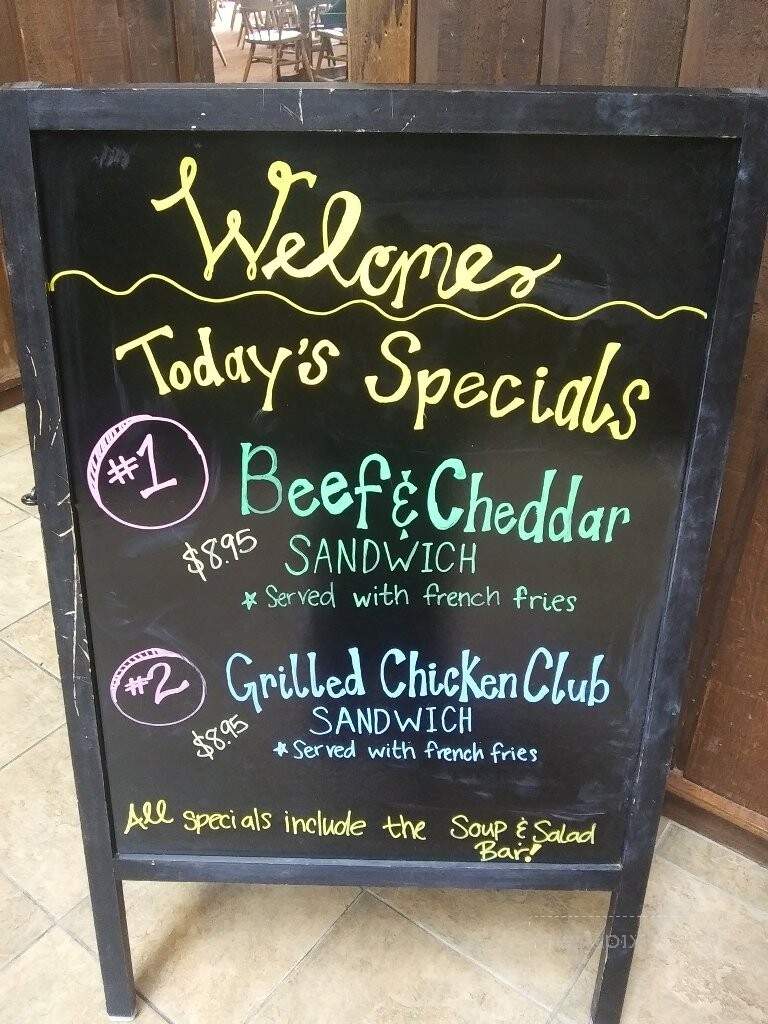 Welcome
Today's Specials
#1
Beef & Cheddar
$8.95 SANDWICH
* Served with french fries
#2
Grilled Chicken Club
$8.95 SANDWICH
* Served with french fries
All specials include the Soup & Salad
Bar!